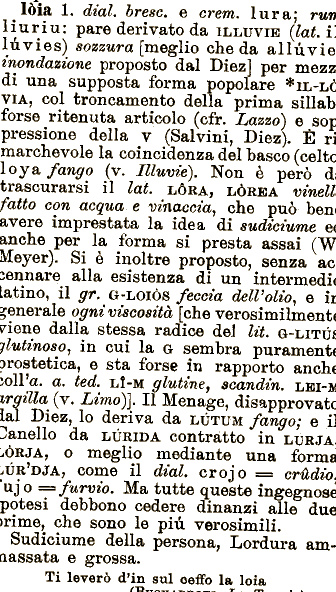 lòia 1. dial. bresc. e crem. lura; rum
liuriu: pare derivato da ILLUVIE (lat. il
lúvies) sozzura [meglio che da allúvie
inondazione proposto dal Diez] per mezz
di una supposta forma popolare *IL-LÒ
VIA, col troncamento della prima sillab
forse ritenuta articolo (cfr. Lazzo) e sop
pressione della V (Salvini, Diez). È ri
marchevole la coincidenza del basco (celto
loya fango (v. Illuvie). Non è però da
trascurarsi il lat. LÔRA, LÒREA vinell
fatto con acqua e vinaccia, che può ben
avere imprestata la idea di sudiciume ed
anche per la forma si presta assai (W
Meyer). Si è inoltre proposto, senza ac
cennare alla esistenza di un intermedi
latino, il gr. G-LOIÒS feccia dell'olio, e in
generale ogni viscosità [che verosimilment
viene dalla stessa radice del lit. G-LITÚS
glutinoso, in cui la G sembra purament
prostetica, e sta forse in rapporto anche
coll'a. a. ted. LÎ-M glutine, scandin. LEI-M
argilla (v. Limo)]. Il Menage, disapprovato
dal Diez, lo deriva da LÚTUM fango; e il
Canello da LÚRIDA contratto in LURJA,
LÒRJA, o meglio mediante una forma
LÚR'DJA, come il dial. crojo = crûdio,
fujo = furvio. Ma tutte queste ingegnose
ipotesi debbono cedere dinanzi alle due
prime, che sono le piú verosimili.
Sudiciume della persona, Lordura am-
massata e grossa.
Ti leverò d'in sul ceffo la loia